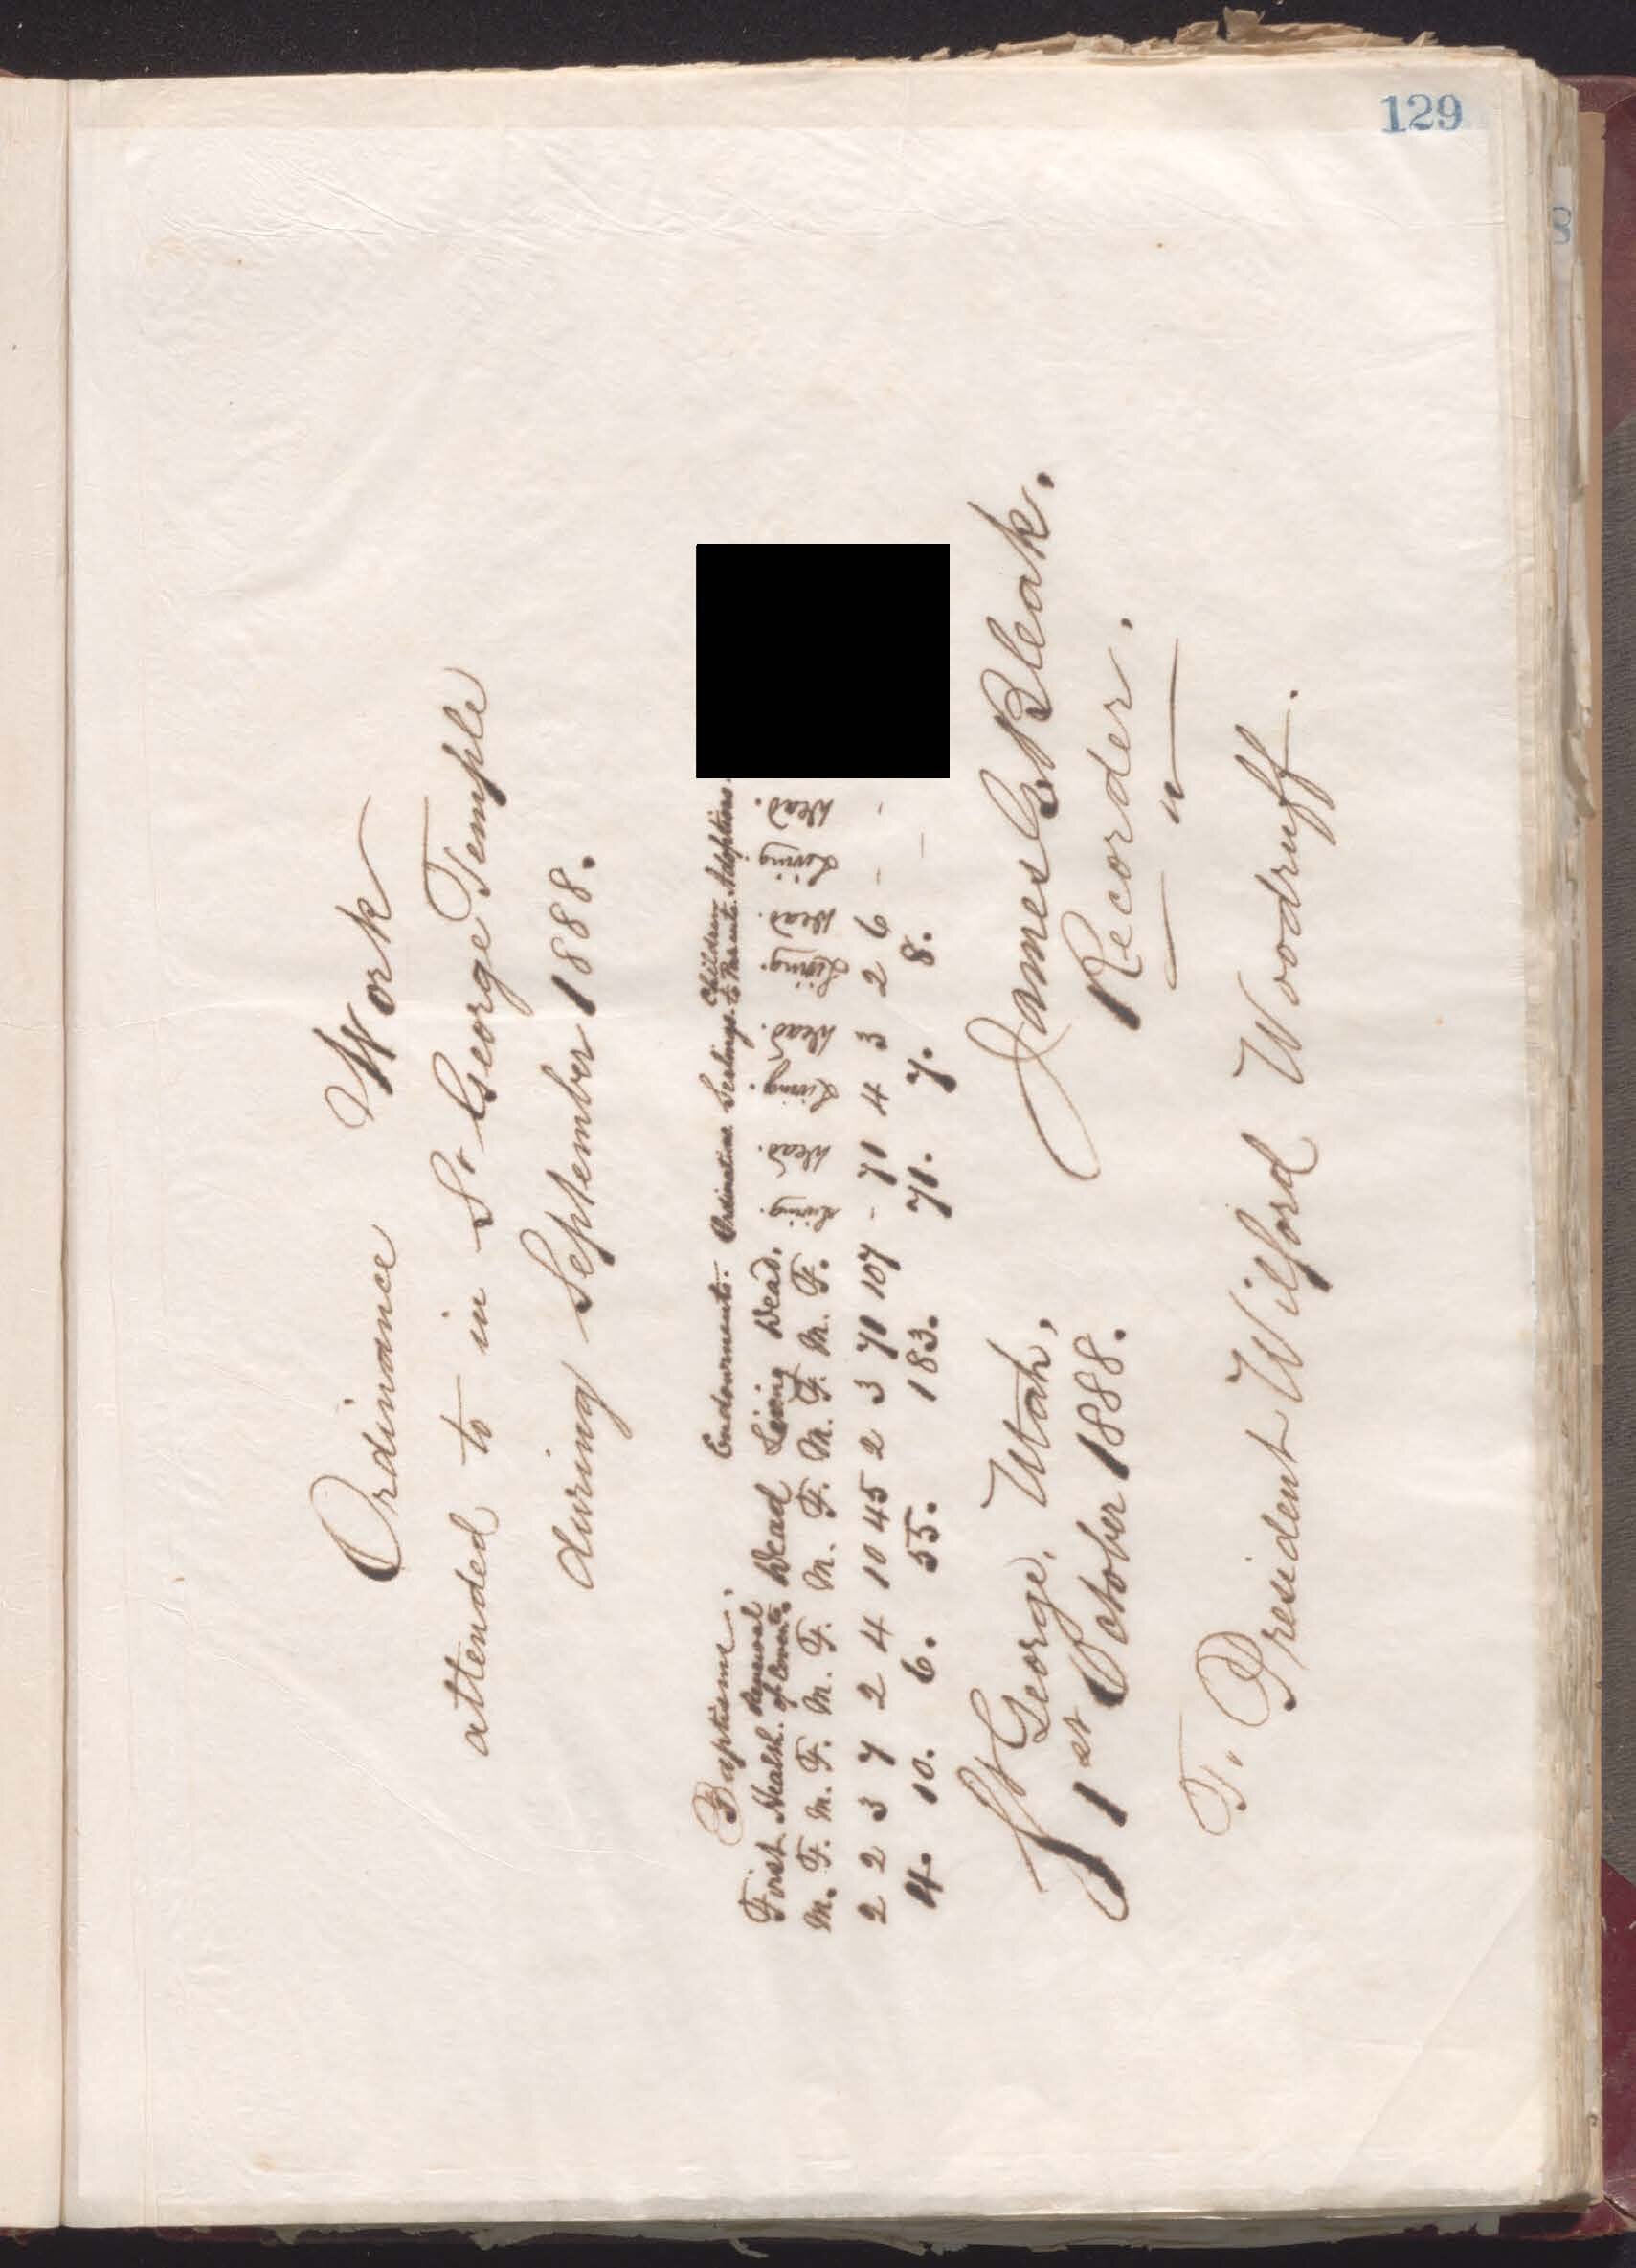 129
Ordinance Work
attended to in St George Temple
during September 1888.
Baptisms. Endowments. Ordinations Sealings. Children to Parents. Adoptions.
First Health. Renewal of Covnts. Dead Living Dead. Living. Dead. Living. Dead. Living. Dead. Living. Dead.
M. F. M. F. M. F. M. F. M. F. M. F.
2 2 3 7 2 4 10 45 2 3 71 107 - 71 4 3 2 6 - -
4. 10. 6. 55. 183. 71. 7. 8. -
St George, Utah,
1st October 1888.
James G Bleak.
Recorder.
"
T. President Wilford Woodruff.